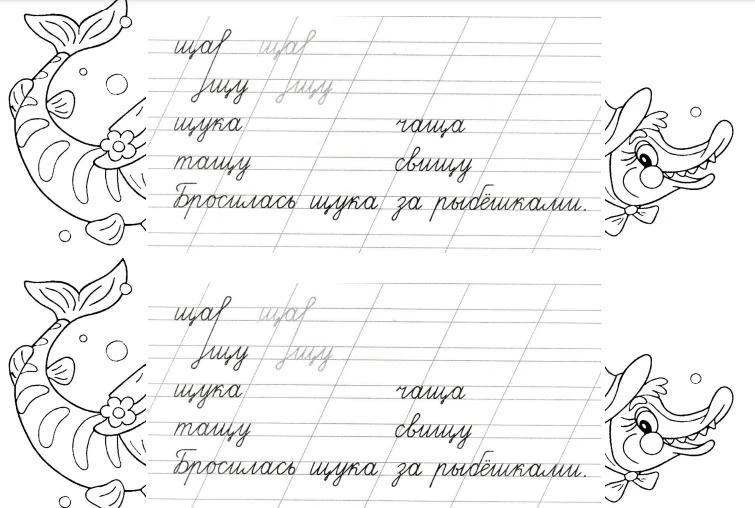 ща ща
щу щу
щука чаща
тащу свищу
Бросилась щука за рыбёшками.
ща ща
щу щу
щука чаща
тащу свищу
Бросилась щука за рыбёшками.